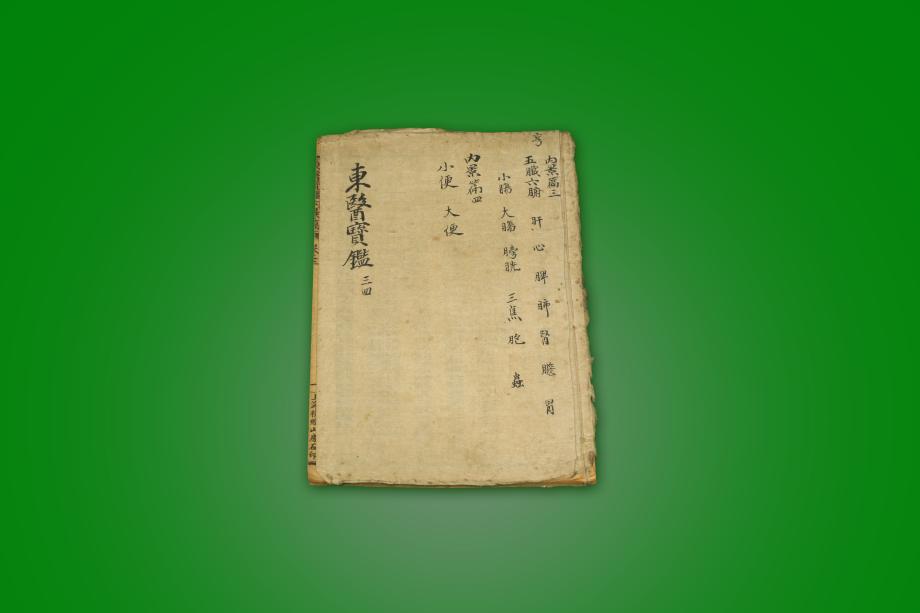 內景篇三
五臟六腑 肝 心 脾 肺 腎 膽 胃
小腸 大腸 膀胱 三焦 胞 蟲
內景篇四
小便 大便
東醫寶鑑 三四